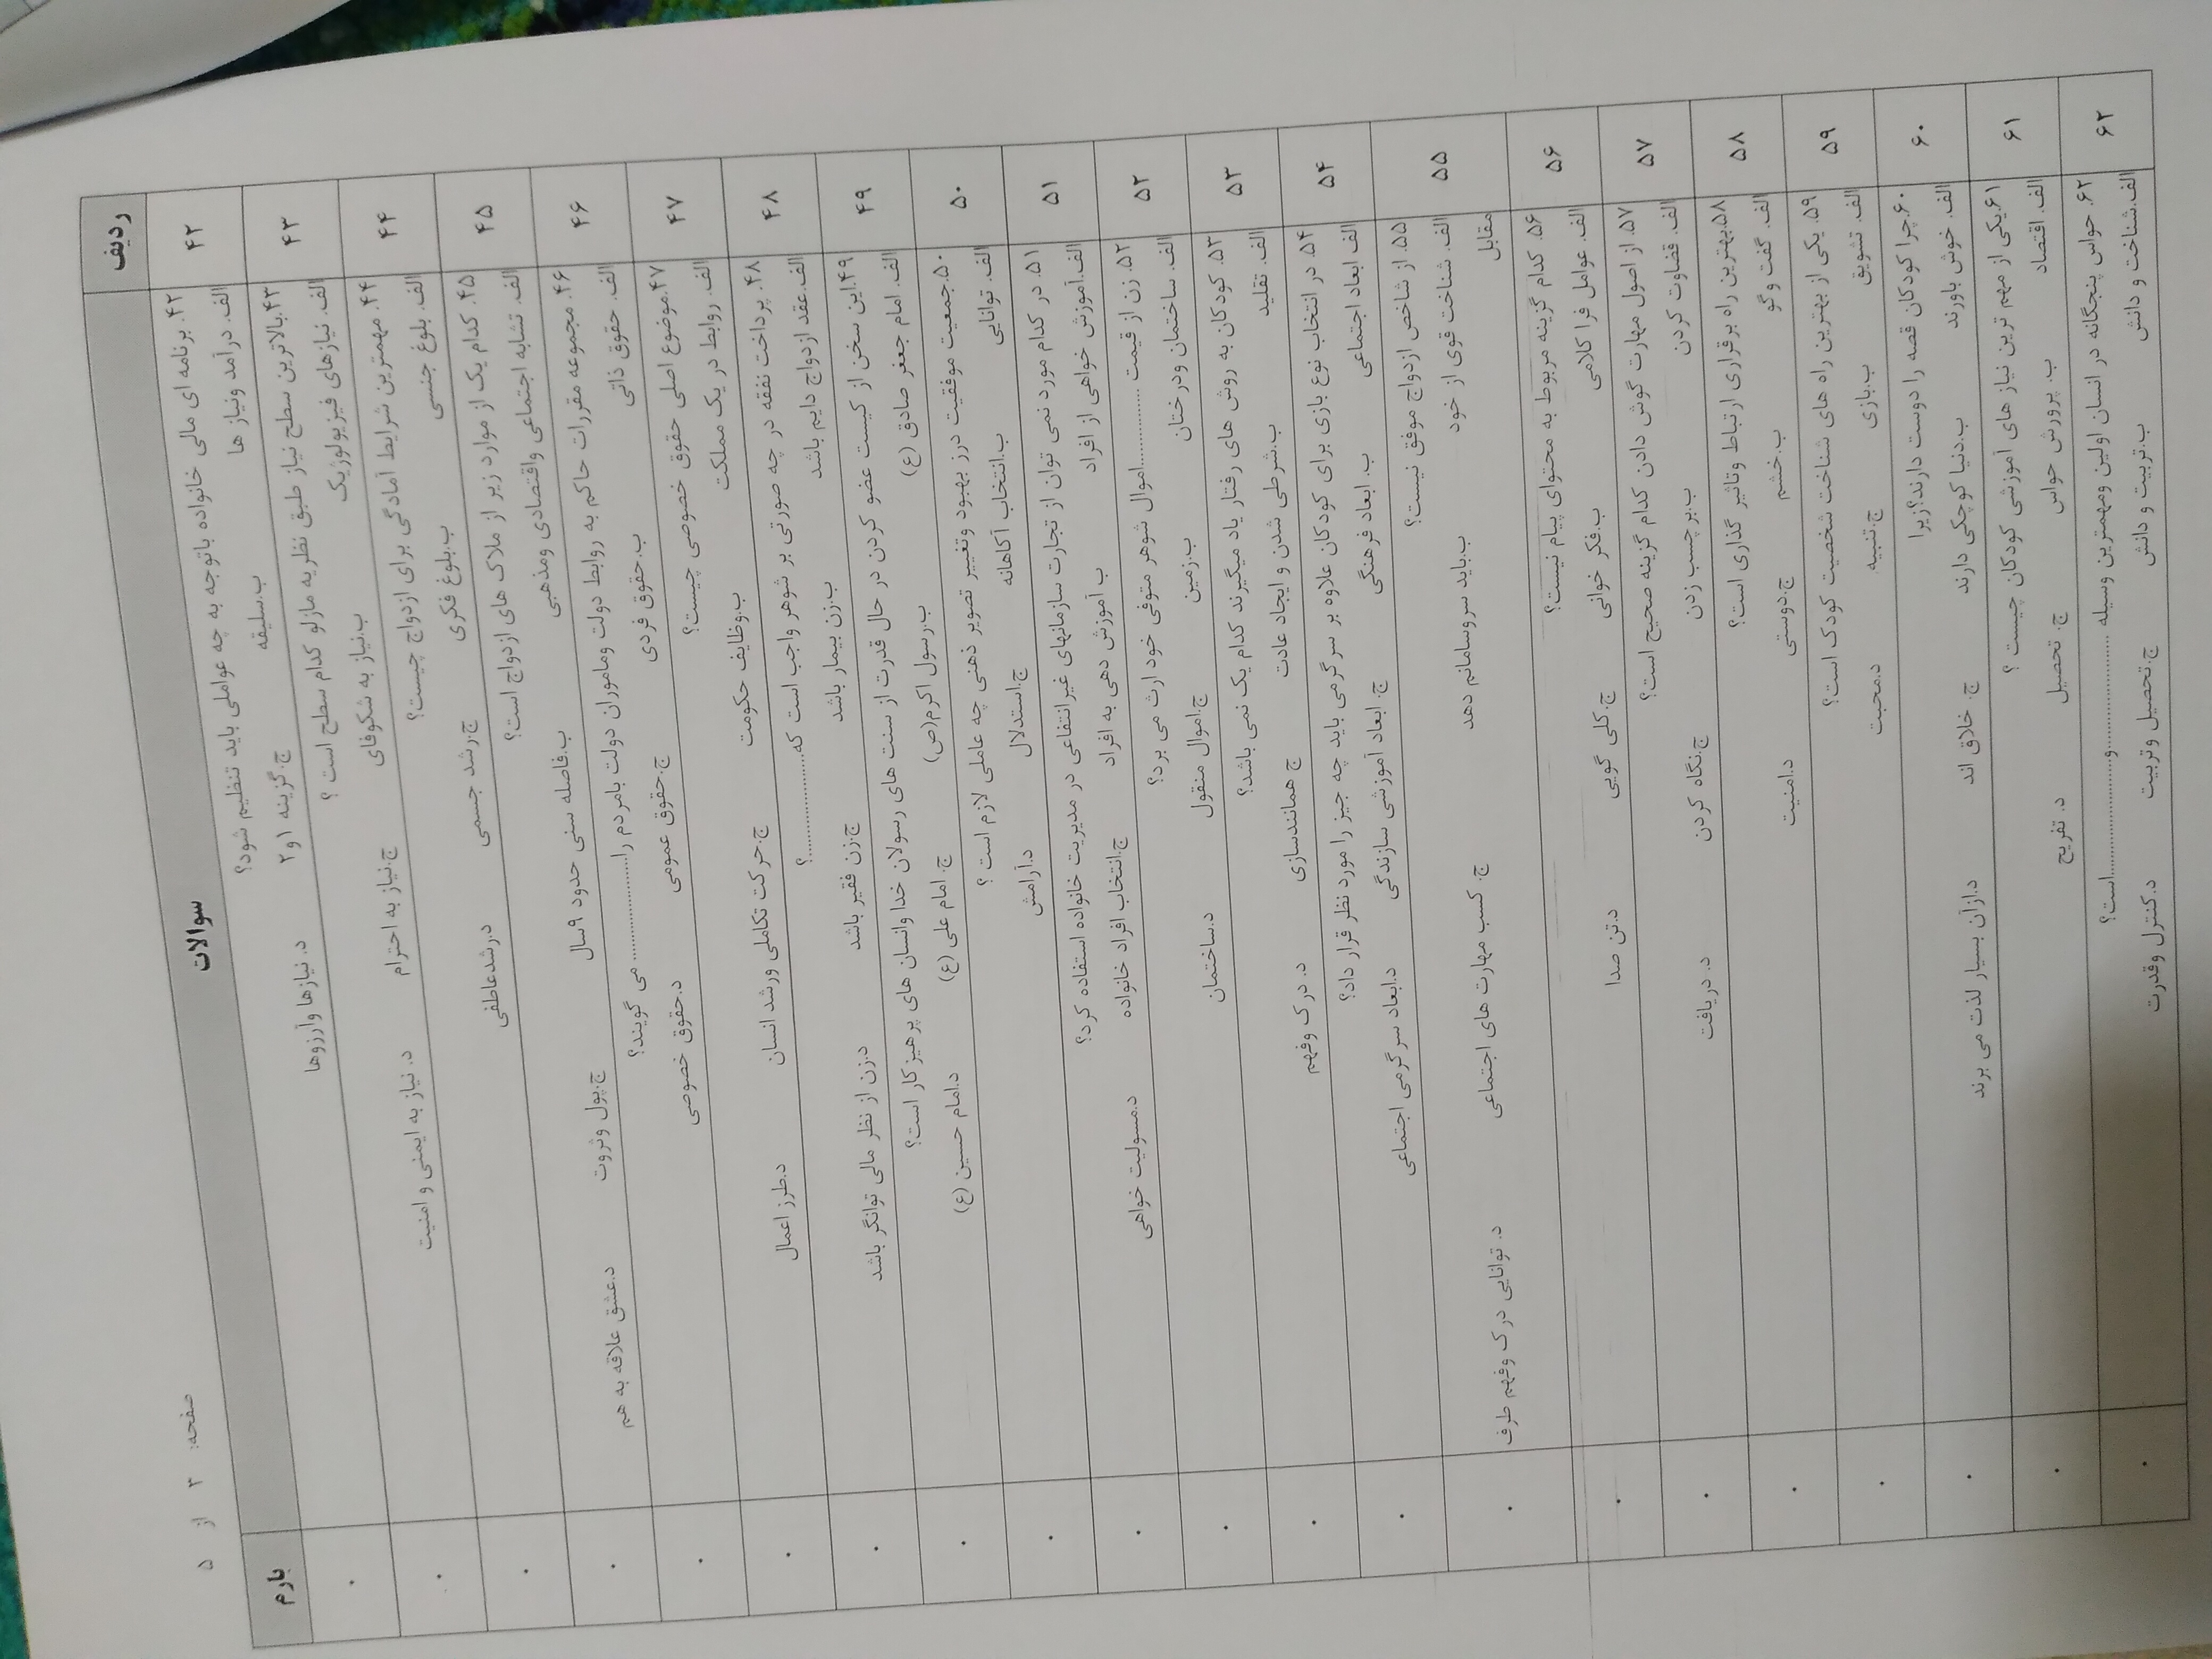 صفحه: ۳ از ۵
ردیف سوالات بارم
۴۲ ۴۲. برنامه ای مالی خانواده باتوجه به چه عواملی باید تنظیم شود؟
الف. درآمد ونیاز ها ب.سلیقه ج.گزینه ۱و۲ د. نیازها وآرزوها
۴۳ ۴۳.بالاترین سطح نیاز طبق نظریه مازلو کدام سطح است ؟
الف. نیازهای فیزیولوژیک ب.نیاز به شکوفای ج.نیاز به احترام د. نیاز به ایمنی و امنیت
۴۴ ۴۴. مهمترین شرایط آمادگی برای ازدواج چیست؟
الف. بلوغ جنسی ب.بلوغ فکری ج.رشد جسمی د.رشدعاطفی
۴۵ ۴۵. کدام یک از موارد زیر از ملاک های ازدواج است؟
الف. تشابه اجتماعی واقتصادی ومذهبی ب.فاصله سنی حدود ۹سال ج.پول وثروت د.عشق علاقه به هم
۴۶ ۴۶. مجموعه مقررات حاکم به روابط دولت وماموران دولت بامردم را............... می گویند؟
الف. حقوق ذاتی ب.حقوق فردی ج.حقوق عمومی د.حقوق خصوصی
۴۷ ۴۷.موضوع اصلی حقوق خصوصی چیست؟
الف. روابط در یک مملکت ب.وظایف حکومت ج.حرکت تکاملی ورشد انسان د.طرز اعمال
۴۸ ۴۸. پرداخت نفقه در چه صورتی بر شوهر واجب است که...............؟
الف.عقد ازدواج دایم باشد ب.زن بیمار باشد ج.زن فقیر باشد د.زن از نظر مالی توانگر باشد
۴۹ ۴۹.این سخن از کیست عضو کردن در حال قدرت از سنت های رسولان خدا وانسان های پرهیزکار است؟
الف. امام جعفر صادق (ع) ب.رسول اکرم(ص) ج. امام علی (ع) د.امام حسین (ع)
۵۰ ۵۰.جمعیت موفقیت درز بهبود وتغییر تصویر ذهنی چه عاملی لازم است ؟
الف. توانایی ب.انتخاب آکاهانه ج.استدلال د.آرامش
۵۱ ۵۱. در کدام مورد نمی توان از تجارت سازمانهای غیرانتفاعی در مدیریت خانواده استفاده کرد؟
الف.آموزش خواهی از افراد ب آموزش دهی به افراد ج.انتخاب افراد خانواده د.مسولیت خواهی
۵۲ ۵۲. زن از قیمت ...............اموال شوهر متوفی خود ارث می برد؟
الف. ساختمان ودرختان ب.زمین ج.اموال منقول د.ساختمان
۵۳ ۵۳. کودکان به روش های رفتار یاد میگیرند کدام یک نمی باشد؟
الف. تقلید ب.شرطی شدن و ایجاد عادت ج همانندسازی د. درک وفهم
۵۴ ۵۴. در انتخاب نوع بازی برای کودکان علاوه بر سرگرمی باید چه جیز را مورد نظر قرار داد؟
الف ابعاد اجتماعی ب. ابعاد فرهنگی ج. ابعاد آموزشی سازندگی د.ابعاد سرگرمی اجتماعی
۵۵ ۵۵. از شاخص ازدواج موفق نیست؟
الف. شناخت قوی از خود ب.باید سروسامانم دهد ج. کسب مهارت های اجتماعی د. توانایی درک وفهم طرف
مقابل
۵۶ ۵۶. کدام گزینه مربوط به محتوای پیام نیست؟
الف. عوامل فرا کلامی ب.فکر خوانی ج.کلی گویی د.تن صدا
۵۷ ۵۷. از اصول مهارت گوش دادن کدام گزینه صحیح است؟
الف. قضاوت کردن ب.برچسب زدن ج.نگاه کردن د. دریافت
۵۸ ۵۸.بهترین راه برقراری ارتباط وتاثیر گذاری است؟
الف. گفت و گو ب.خشم ج.دوستی د.امنیت
۵۹ ۵۹. یکی از بهترین راه های شناخت شخصیت کودک است؟
الف. تشویق ب.بازی ج.تنبیه د.محبت
۶۰ ۶۰.چرا کودکان قصه را دوست دارند؟زیرا
الف. خوش باورند ب.دنیا کوچکی دارند ج. خلاق اند د.ازآن بسیار لذت می برند
۶۱ ۶۱.یکی از مهم ترین نیاز های آموزشی کودکان چیست ؟
الف. اقتصاد ب. پرورش حواس ج. تحصیل د. تفریح
۶۲ ۶۲. حواس پنجگانه در انسان اولین ومهمترین وسیله ...............و...............است؟
الف.شناخت و دانش ب.تربیت و دانش ج.تحصیل وتربیت د.کنترل وقدرت